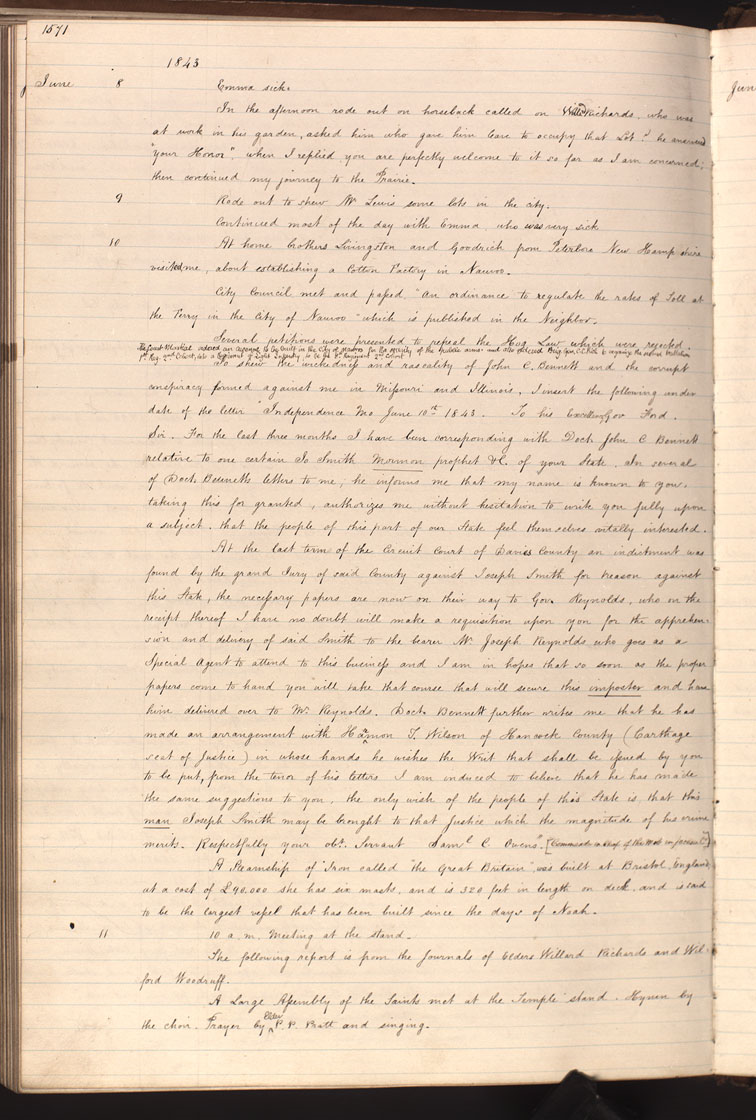 1571
1843
June 8 Emma sick.
In the afternoon rode out on horseback called on Willd Richards, who was
at work in his garden, asked him who gave him leave to occupy that Lot? he answered
"your Honor", when I replied you are perfectly welcome to it so far as I am concerned;
then continued my journey to the Prairie.
9 Rode out to shew Mr Lewis some lots in the city.
Continued most of the day with Emma, who was very sick
10 At home brothers Livingston and Goodrich from Peterboro New Hampshire
visited me, about establishing a Cotton Factory in Nauvoo.
City Council met and passed "An ordinance to regulate the rates of Toll at
the Ferry in the City of Nauvoo" which is published in the Neighbor.
Several petitions were presented to repeal the Hog Law, which were rejected.
The Court Martial ordered an arsenal to be built in the City of Nauvoo for the security of the public arms. and also ordered Brig. Gen. C. C. Rich to organize the second Battalion
1st Reg. 2nd Cohort, into a Regiment of Light Infantry, to be Regiment 2nd Cohort
To shew the wickedness and rascality of John C. Bennett and the corrupt
conspiracy formed against me in Missouri and Illinois, I insert the following under
date of the letter "Independence Mo June 10th 1843. To his Excellency Gov Ford.
Sir. For the last three months I have been corresponding with Doct. John C Bennett
relative to one certain Jo Smith Mormon prophet &c. of your State. In several
of Doct. Bennetts letters to me, he informs me that my name is known to you.
taking this for granted, authorizes me without hesitation to write you fully upon
a subject, that the people of this part of our State feel themselves vitally interested.
At the last term of the Circuit Court of Daviss County an indictment was
found by the grand Jury of said County against Joseph Smith for treason against
this State, the necessary papers are now on their way to Gov. Reynolds, who on the
receipt thereof I have no doubt will make a requisition upon you for the apprehen-
sion and delivery of said Smith to the bearer Mr Joseph Reynolds, who goes as a
Special Agent to attend to this business and I am in hopes that so soon as the proper
papers come to hand you will take that course that will secure this imposter and have
him delivered over to Mr Reynolds. Doct. Bennett further writes me that he has
made an arrangement with Harmon T. Wilson of Hancock County (Carthage
seat of Justice) in whose hands he wishes the Writ that shall be issued by you
to be put, from the tenor of his letters I am induced to believe that he has made
the same suggestions to you. the only wish of the people of this State is, that this
man Joseph Smith may be brought to that Justice which the magnitude of his crime
merits. Respectfully your obt. Servant Saml C Owens". [Commander in chief of the Mob in Jackson Co]
A Steamship of Iron called "the Great Britain" was built at Bristol, England
at a cost of £90.000 she has six masts, and is 320 feet in length on deck, and is said
to be the largest vessel that has been built since the days of Noah.
11 10 a.m. Meeting at the stand.
The following report is from the Journals of Elders Willard Richards and Wil-
ford Woodruff.
A Large Assembly of the Saints met at the Temple stand. Hymn by
the choir. Prayer by Elder P. P. Pratt and singing.
Jun